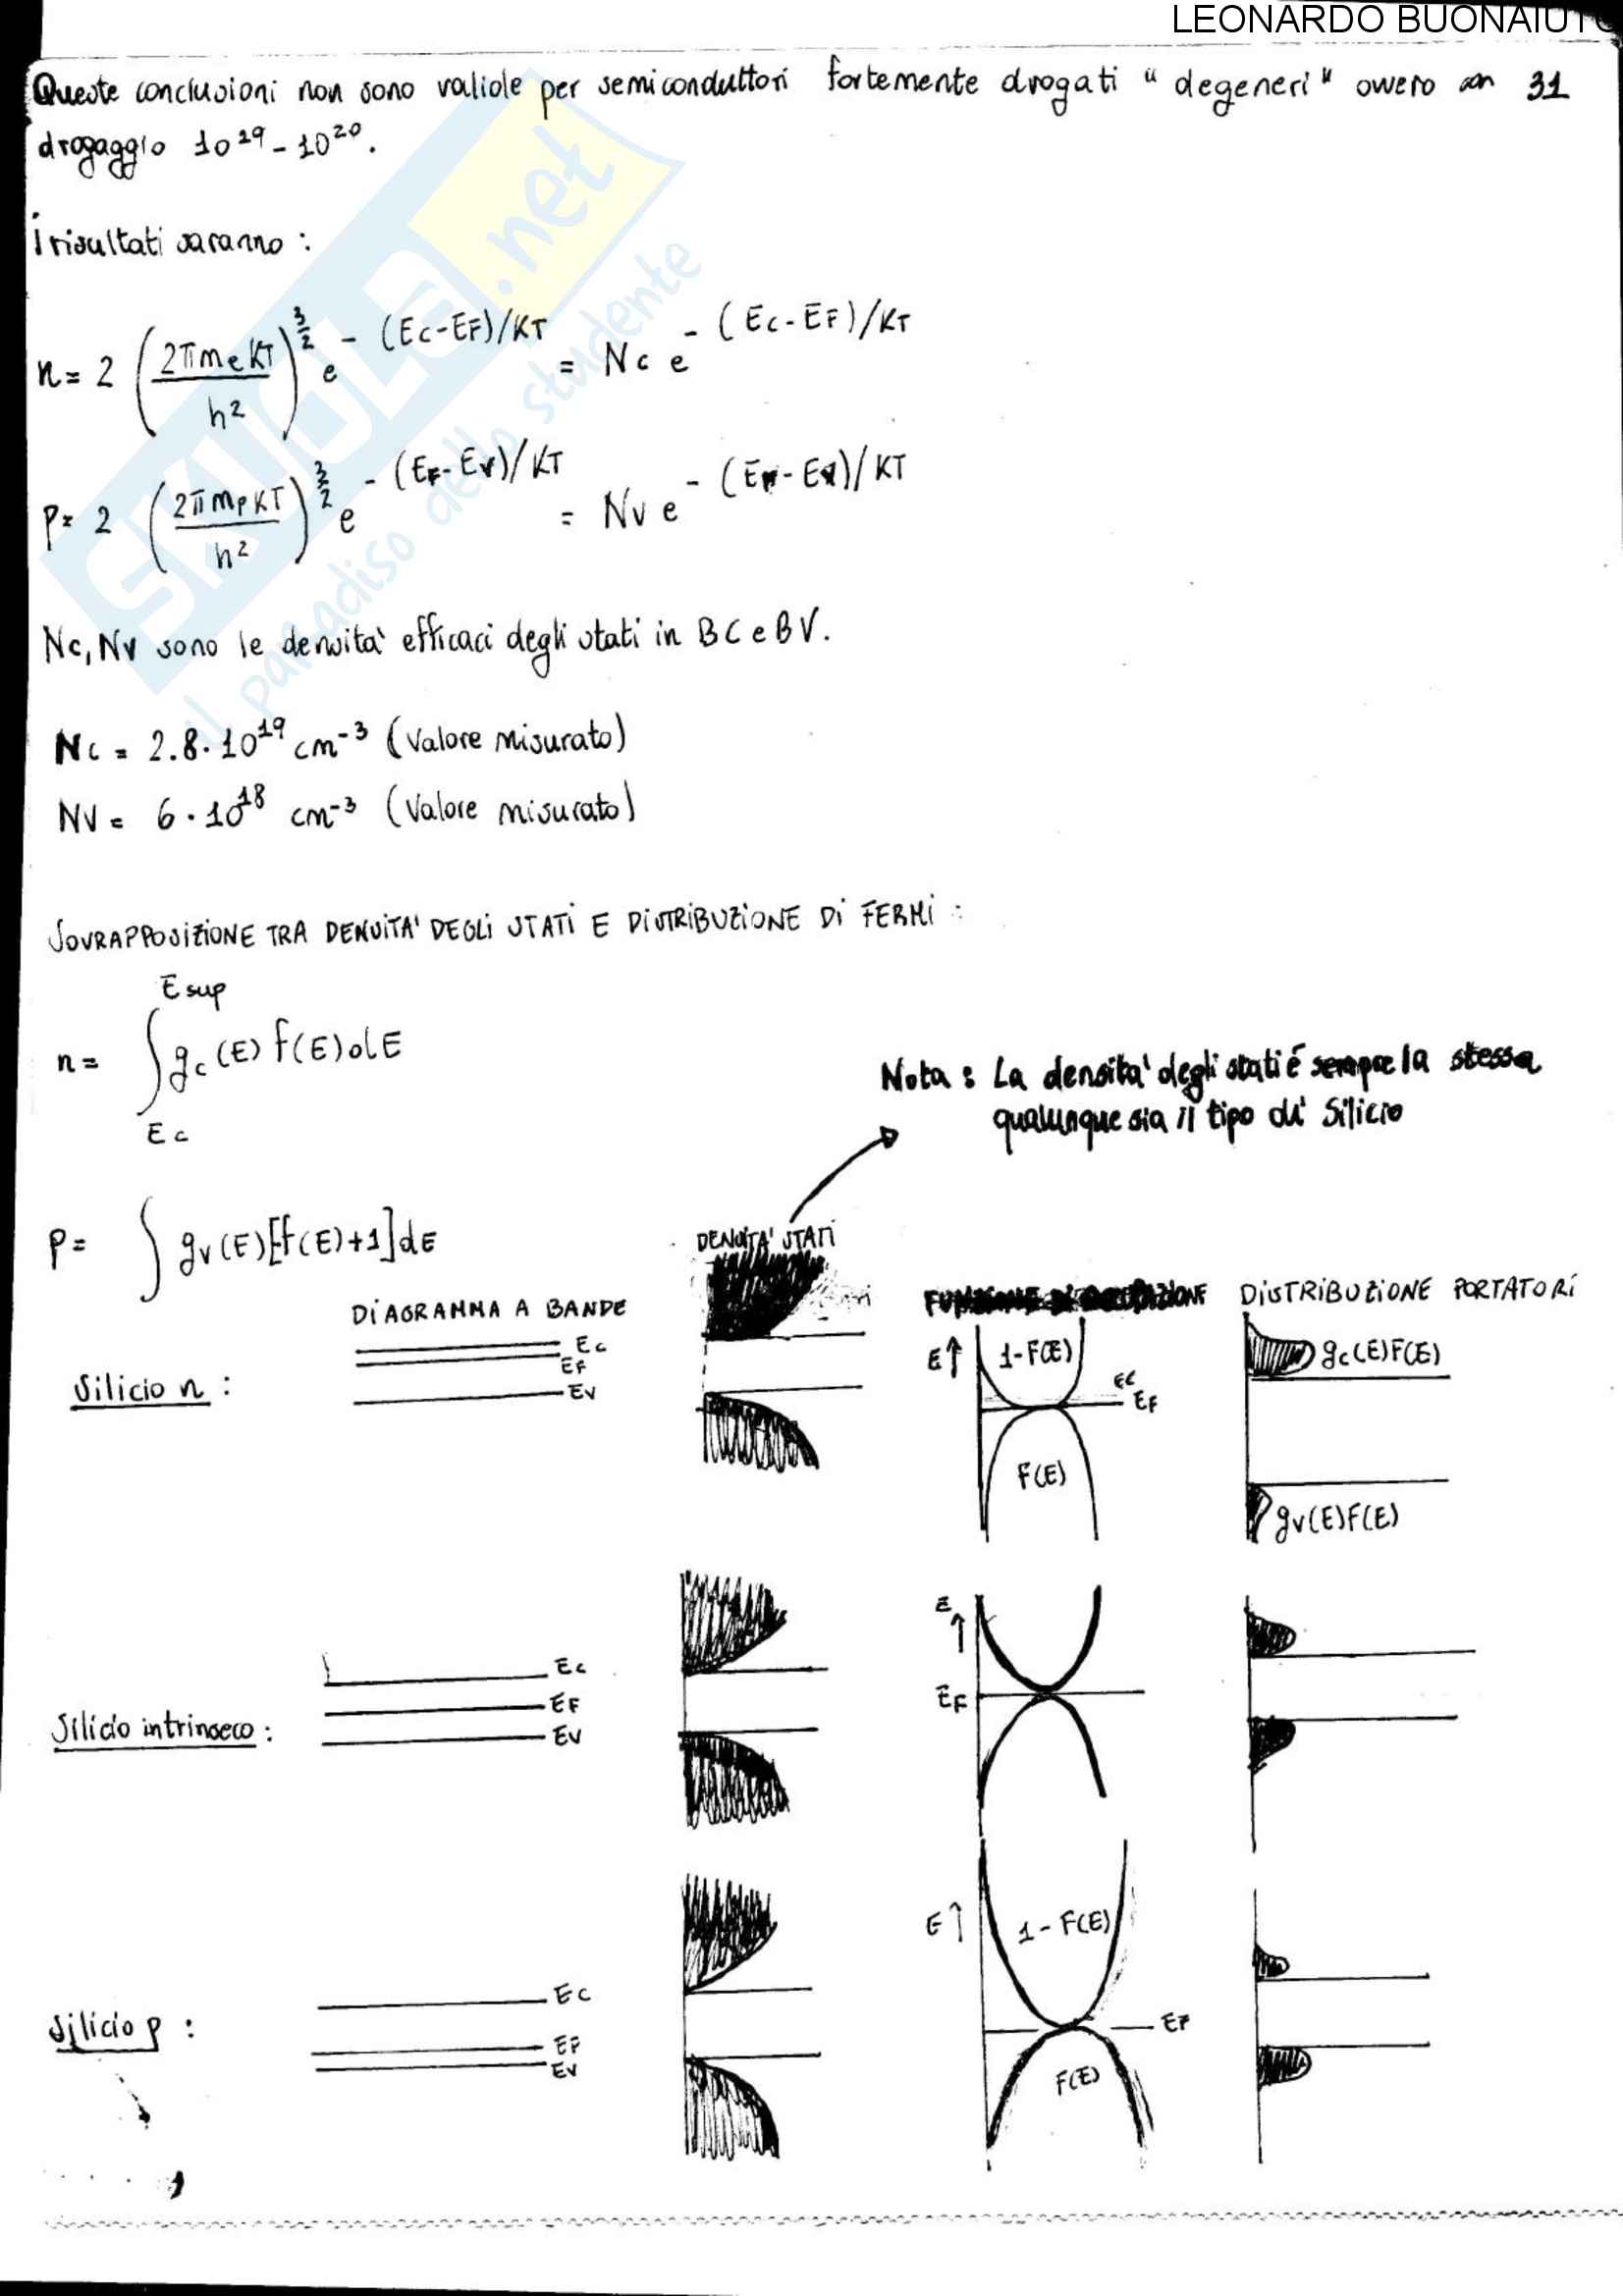 LEONARDO BUONAIUTO
Queste conclusioni non sono valide per semiconduttori fortemente drogati "degeneri" ovvero con 31
drogaggio 10^19 - 10^20.
i risultati saranno :
n = 2 (2πmeKT / h^2)^3/2 e^-(Ec-EF)/KT = Nc e^-(Ec-EF)/KT
p = 2 (2πmpKT / h^2)^3/2 e^-(EF-Ev)/KT = Nv e^-(EF-Ev)/KT
Nc, Nv sono le densita' efficaci degli stati in BC e BV.
Nc = 2.8·10^19 cm^-3 (Valore misurato)
NV = 6·10^18 cm^-3 (Valore misurato)
SOVRAPPOSIZIONE TRA DENSITA' DEGLI STATI E DISTRIBUZIONE DI FERMI :
n = ∫_Ec^Esup gc(E) f(E) dE
Nota : La densita' degli stati é sempre la stessa
qualunque sia il tipo di Silicio
p = ∫ gv(E)[f(E)+1]dE
DENSITA' STATI
DIAGRAMMA A BANDE
FUNZIONE DI OCCUPAZIONE
DISTRIBUZIONE PORTATORI
Silicio n :
Ec
EF
Ev
E↑
1-F(E)
EC
EF
F(E)
gc(E)F(E)
gv(E)F(E)
Silicio intrinseco :
Ec
EF
EV
E
↑
EF
Silicio p :
EC
EF
EV
E↑
1-F(E)
EF
F(E)
SKUOLA.net
il paradiso dello studente